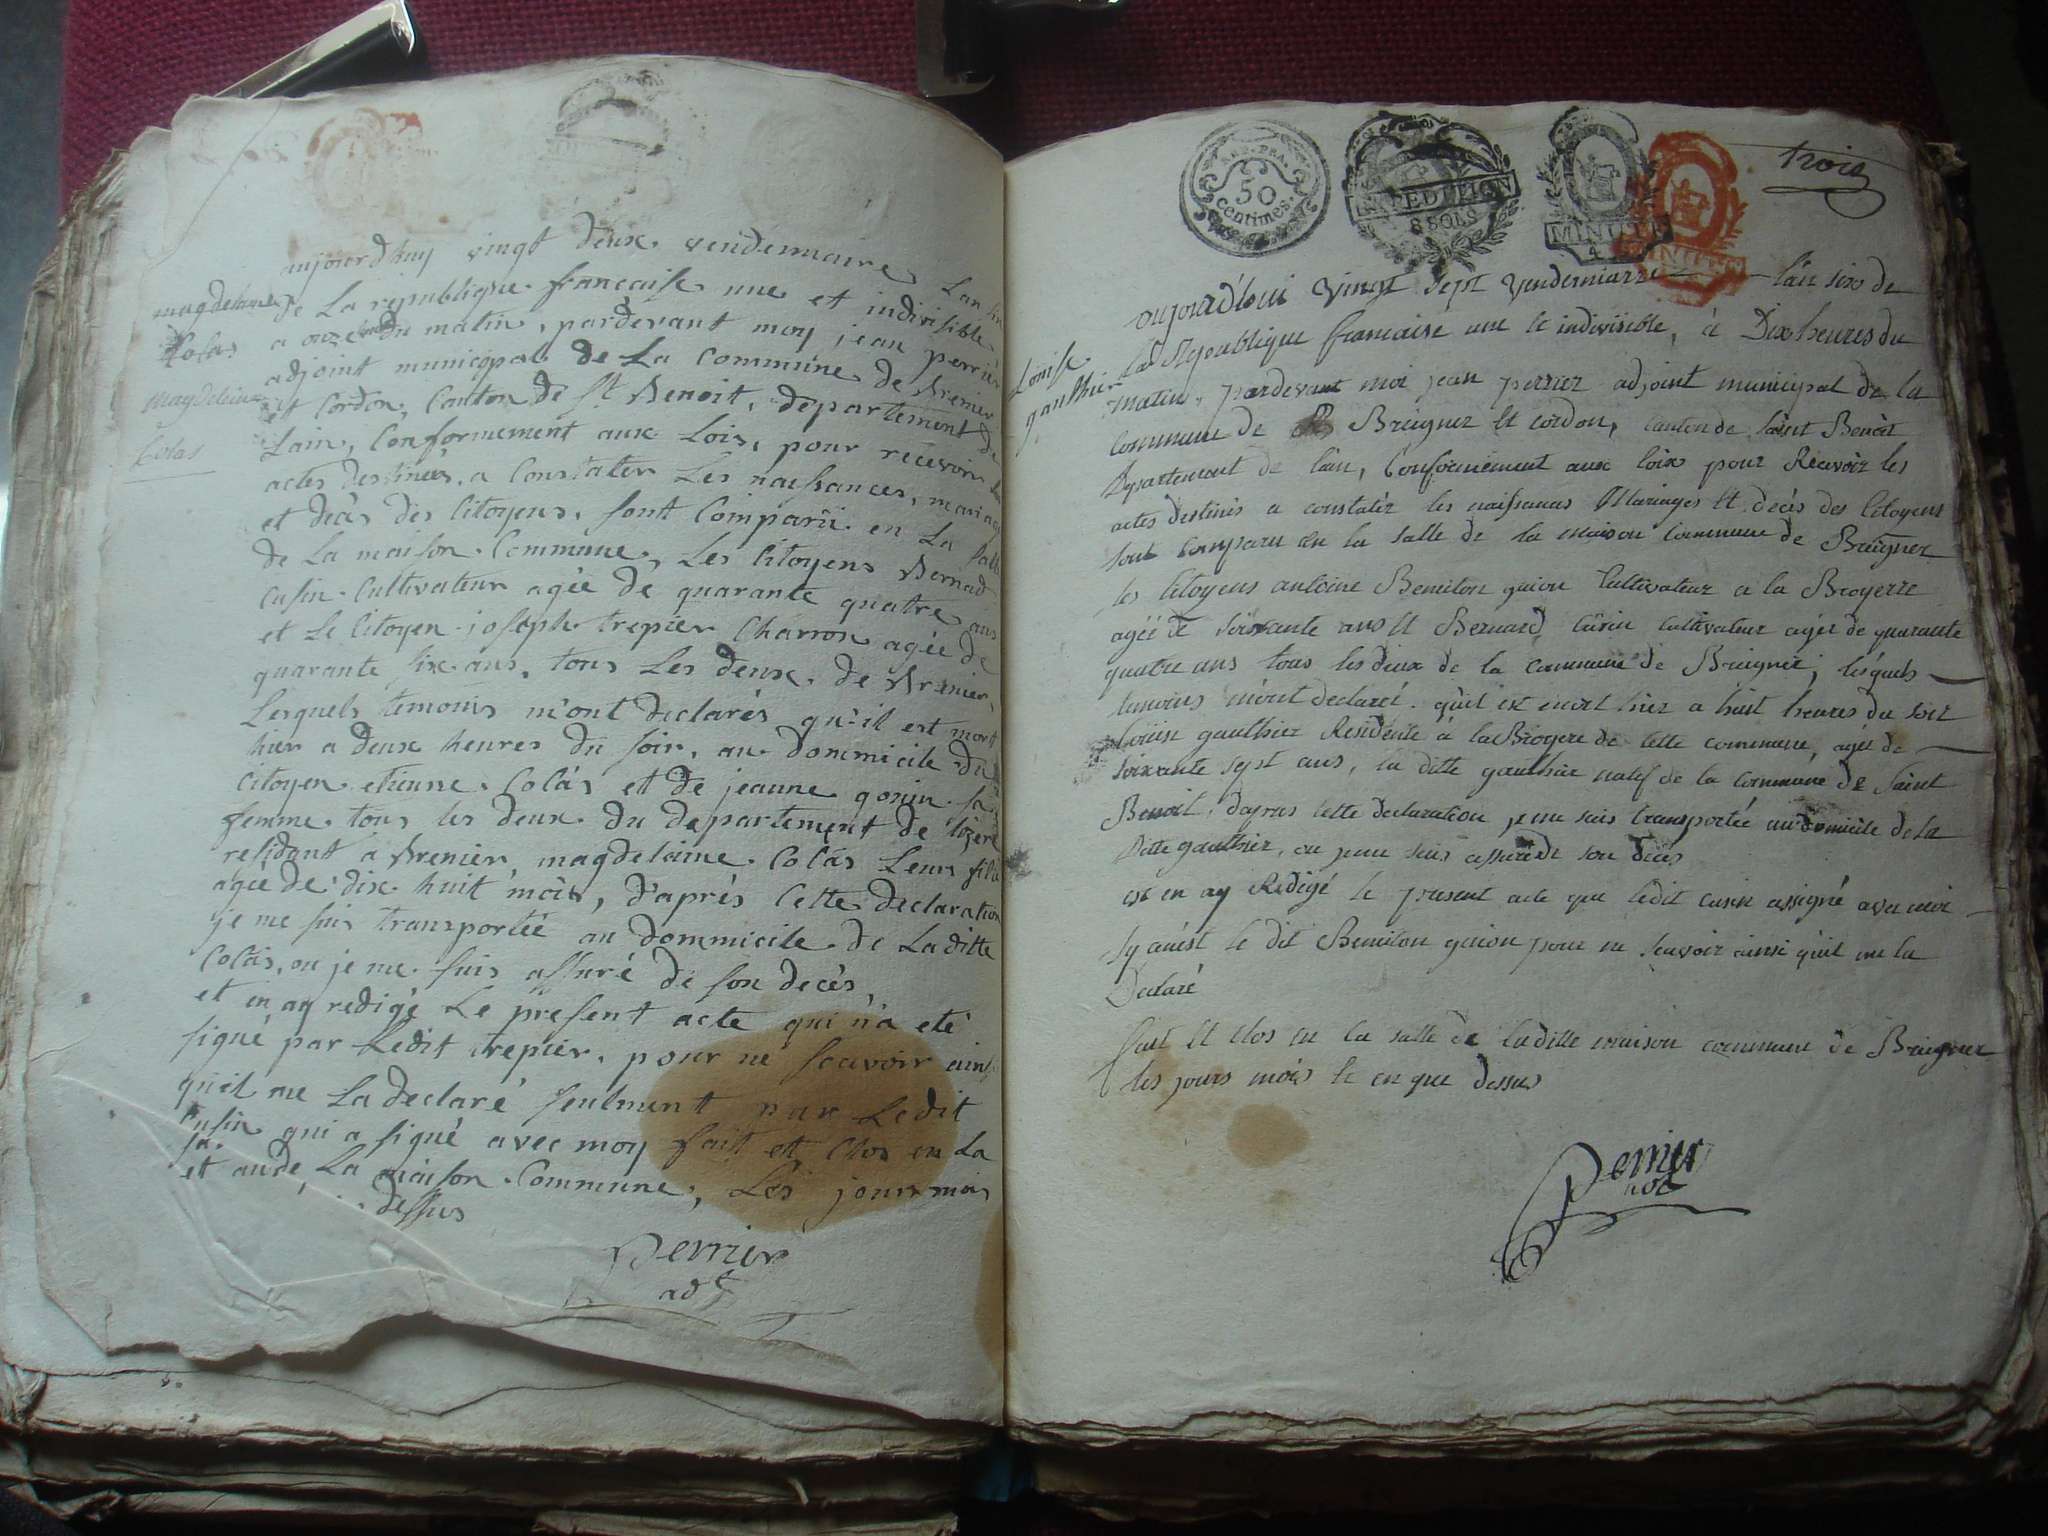 aujourdhuy vingt deux vendemiaire Lan six
magdelaine
Colas
magdelaine
Colas
de La republique francaise une et indivisible
a onze du matin, pardevant moy jean perrier
adjoint municipal de La Commune de Brenier
et Cordon, Canton de St Benoit, departement de
Lain, Conformement aux Lois, pour recevoir les
actes destinés a Constater Les naissances, mariages
et decès des Citoyens, sont Comparû en La salle
de La maison Commune, Les Citoyens Bernad
Cusin Cultivateur agée de quarante quatre ans
et Le Citoyen joseph trepier Charron agée de
quarante six ans, tous Les deux de Brenier,
Lesquels temoins m'ont declarés qu'il est mort
hier a deux heures du soir, au dommicile du
Citoyen etienne Colâs et de jeanne gonin sa
femme tous les deux du departement de lozere
residant à Brenier magdelaine Colâs Leur fille
agée de dix huit mois, d'après Cette declaration
je me suis transportée au dommicile de Laditte
Colâs, ou je me suis assuré de son decès,
et en ay redigé Le present acte qui n'a eté
signé par Ledit trepier, pour ne scavoir ainsi
qu'il me La declaré seulment par Ledit
Cusin qui a signé avec moy fait et Clos en La
sa
et an de La maison Commune, Les jours mois
dessus
Perrier
adt
REP. FRA.
50
centimes.
EXPEDITION
8 SOLS
MINUTE
4
MINUTE
trois
aujourd'hui vingt sept vendemiarre l'an six de
Louise
gauthier
la Republique francaise une et indivisible, à Dix heures du
matin, pardevant moi jean perrier adjoint municipal de la
commune de Breigner et cordon, canton de saint Benoit
Departement de l'ain, Conformement aux loix pour Recevoir les
actes destinés a constatér les naissances Mariages et decès des Citoyens
sont Comparu en la salle de la maison commune de Breigner
les Citoyens antoine Bemiton guion Cultivateur a la Broyerre
agée de soixante ans et Bernard Cusin cultivateur agée de quarante
quatre ans tous les deux de la commune de Breigner, lesquels
temoins m'ont declaré qu'il est mort hier a huit heures du soir
Louise gauthier Residente à la Broyere de cette commune, agée de
soixante sept ans, la ditte gauthier natif de la commune de Saint
Benoit, dapres cette declaration je me suis transportée au domicile de la
ditte gauthier, ou je me suis assuré de son decès
et en ay Redigé le present acte que ledit cusin assigné avec moi
le dit Bemiton guion pour ne scavoir ainsi qu'il me la
Declaré
fait et clos en la salle de laditte maison commune de Breigner
les jours mois et en que dessus
Perrier
adt